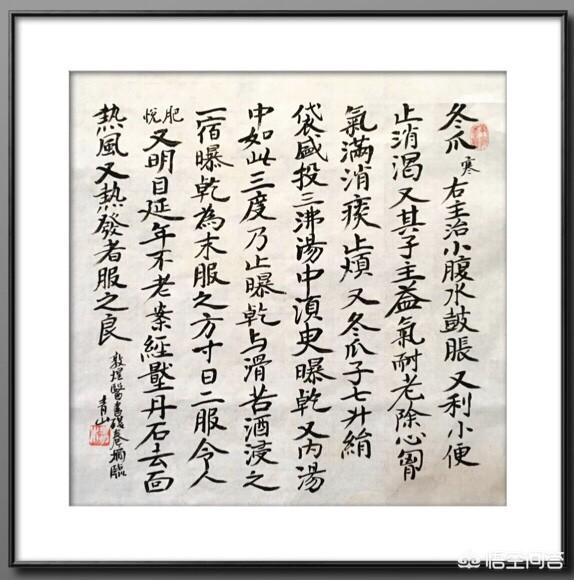 冬爪 寒 右主治小腹水鼓脹 又利小便
止消渴又其子主益氣耐老除心胷
氣滿消痰止煩 又冬瓜子七升絹
袋盛投三沸湯中湏臾曝乾又内湯
中如此三度乃止曝乾与滑苦酒浸之
一宿曝乾為末服之方寸日二服令人
肥悅又明目延年不老案經壓丹石去面
熱風又熱發者服之良
敦煌醫書殘卷摘臨
青山
悟空问答